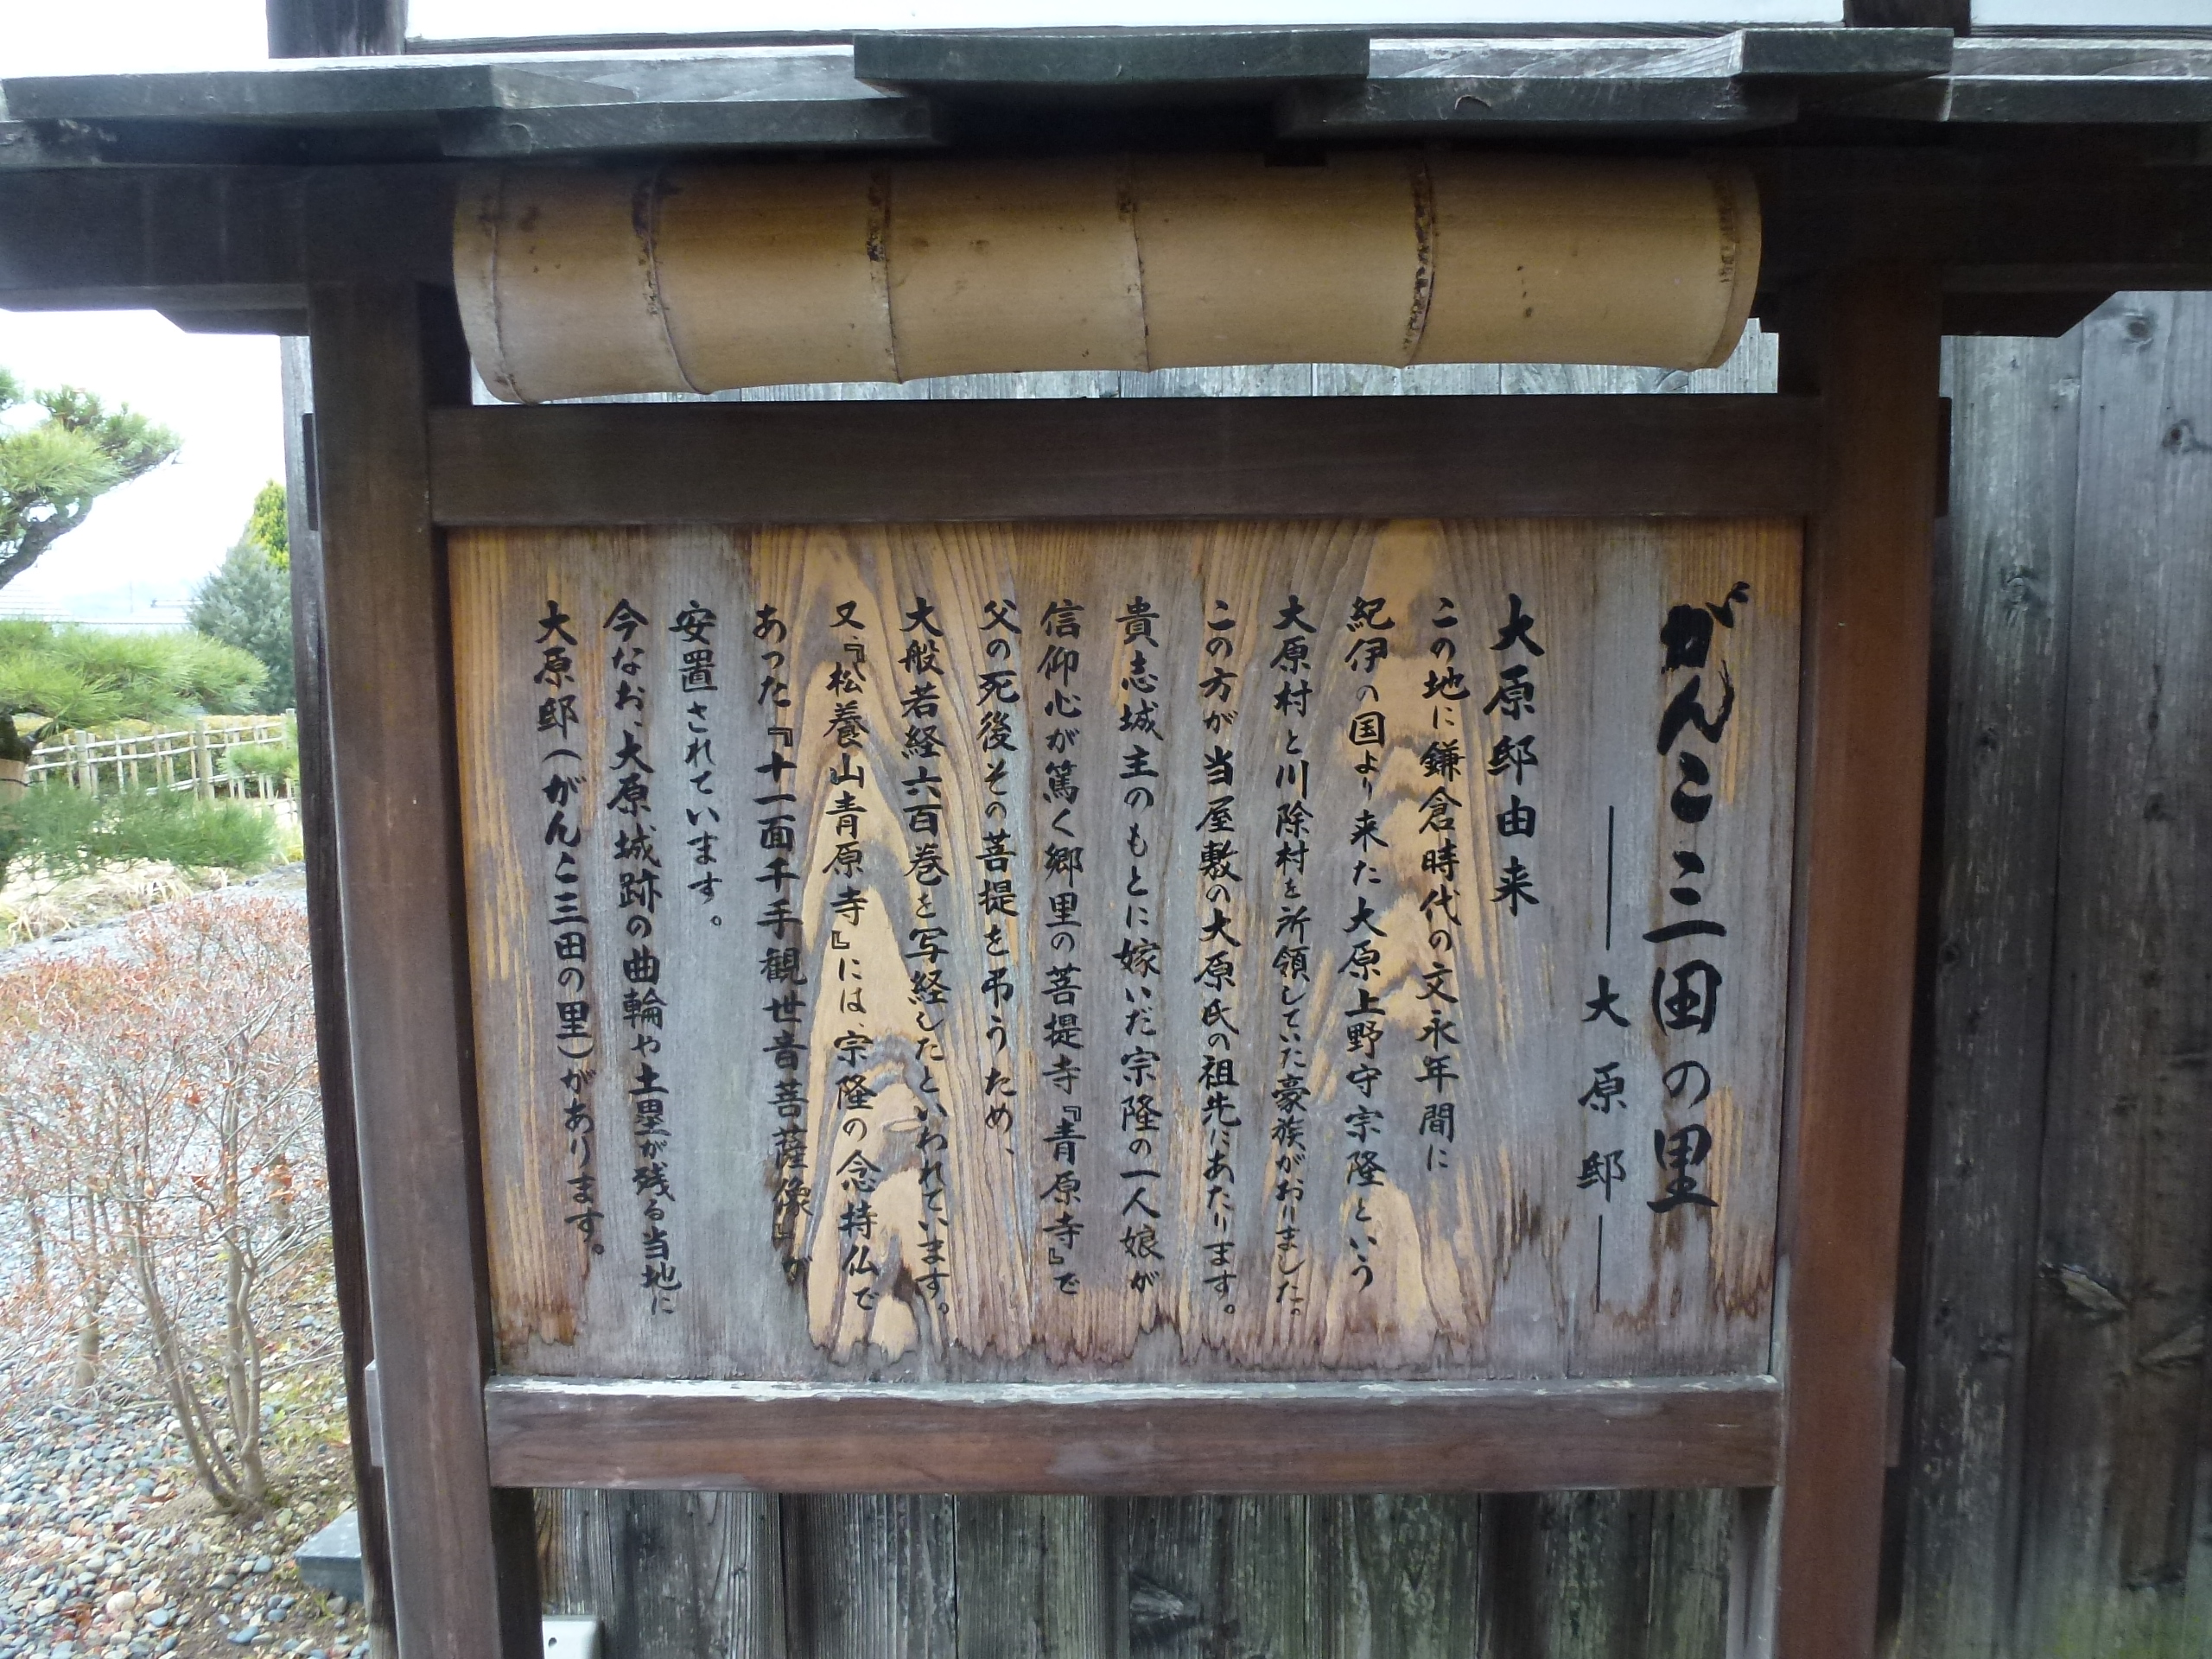 がんこ三田の里
―大原邸―
大原邸由来
この地に鎌倉時代の文永年間に
紀伊の国より来た大原上野守宗隆という
大原村と川除村を所領していた豪族がおりました。
この方が当屋敷の大原氏の祖先にあたります。
貴志城主のもとに嫁いだ宗隆の一人娘が
信仰心が篤く郷里の菩提寺『青原寺』で
父の死後その菩提を弔うため、
大般若経六百巻を写経したといわれています。
又『松養山青原寺』には、宗隆の念持仏で
あった『十一面千手観世音菩薩像』が
安置されています。
今なお、大原城跡の曲輪や土塁が残る当地に
大原邸(がんこ三田の里)があります。